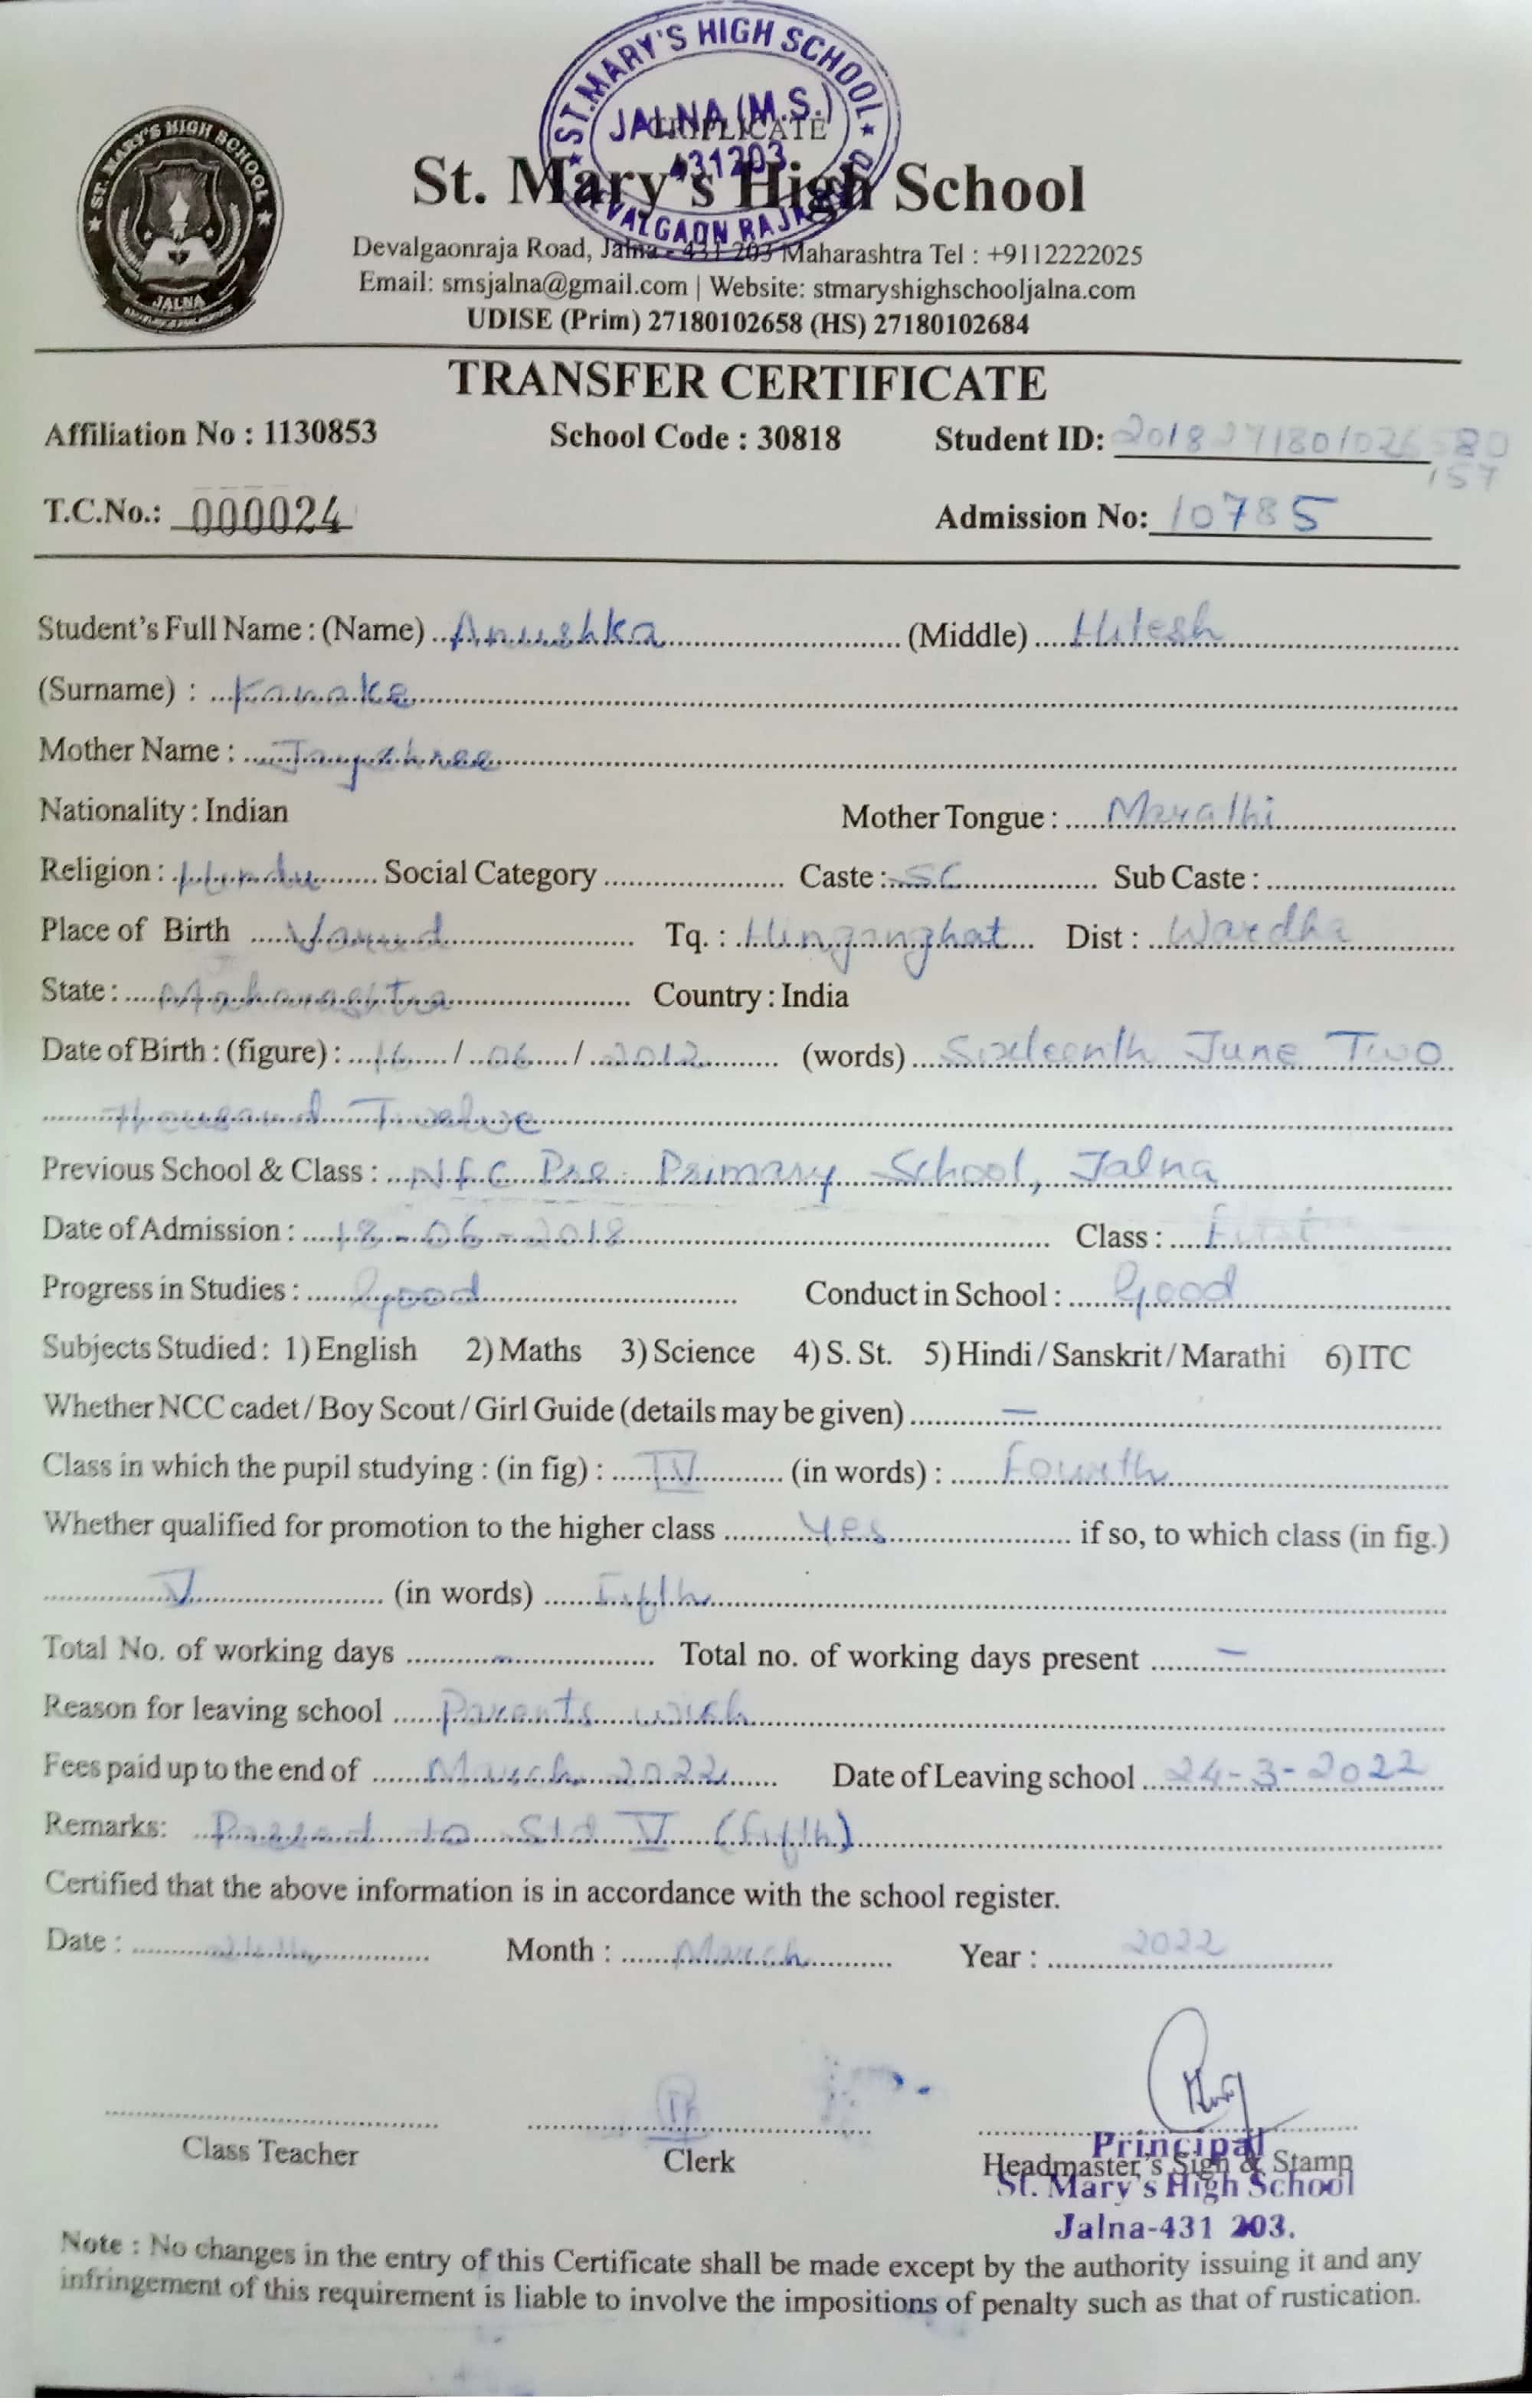 ST. MARY'S HIGH SCHOOL
JALNA (M.S.)
431203
TRIPLICATE
ST. MARY'S HIGH SCHOOL
JALNA
St. Mary's High School
Devalgaonraja Road, Jalna - 431 203 Maharashtra Tel : +9112222025
Email: smsjalna@gmail.com | Website: stmaryshighschooljalna.com
UDISE (Prim) 27180102658 (HS) 27180102684
TRANSFER CERTIFICATE
Affiliation No : 1130853 School Code : 30818 Student ID:
T.C.No.: 000024 Admission No: 10785
Student's Full Name : (Name) Anushka (Middle) Hitesh
(Surname) : Kanake
Mother Name : Jayashree
Nationality : Indian Mother Tongue : Marathi
Religion : Hindu Social Category Caste : SC Sub Caste :
Place of Birth Tq. : Hinganghat Dist : Wardha
State : Maharashtra Country : India
Date of Birth : (figure) : 16 / 06 / 2012 (words) Sixteenth June Two
Thousand Twelve
Previous School & Class : Pre. Primary School, Jalna
Date of Admission : 18-06-2018 Class : First
Progress in Studies : Good Conduct in School : Good
Subjects Studied : 1) English 2) Maths 3) Science 4) S. St. 5) Hindi / Sanskrit / Marathi 6) ITC
Whether NCC cadet / Boy Scout / Girl Guide (details may be given) —
Class in which the pupil studying : (in fig) : IV (in words) : Fourth
Whether qualified for promotion to the higher class Yes if so, to which class (in fig.)
V (in words) Fifth
Total No. of working days - Total no. of working days present -
Reason for leaving school Parents wish
Fees paid up to the end of March 2022 Date of Leaving school 24-3-2022
Remarks: Passed to Std V (Fifth)
Certified that the above information is in accordance with the school register.
Date : Month : March Year : 2022
Class Teacher Clerk Headmaster's Sign & Stamp
Principal
St. Mary's High School
Jalna-431 203.
Note : No changes in the entry of this Certificate shall be made except by the authority issuing it and any
infringement of this requirement is liable to involve the impositions of penalty such as that of rustication.